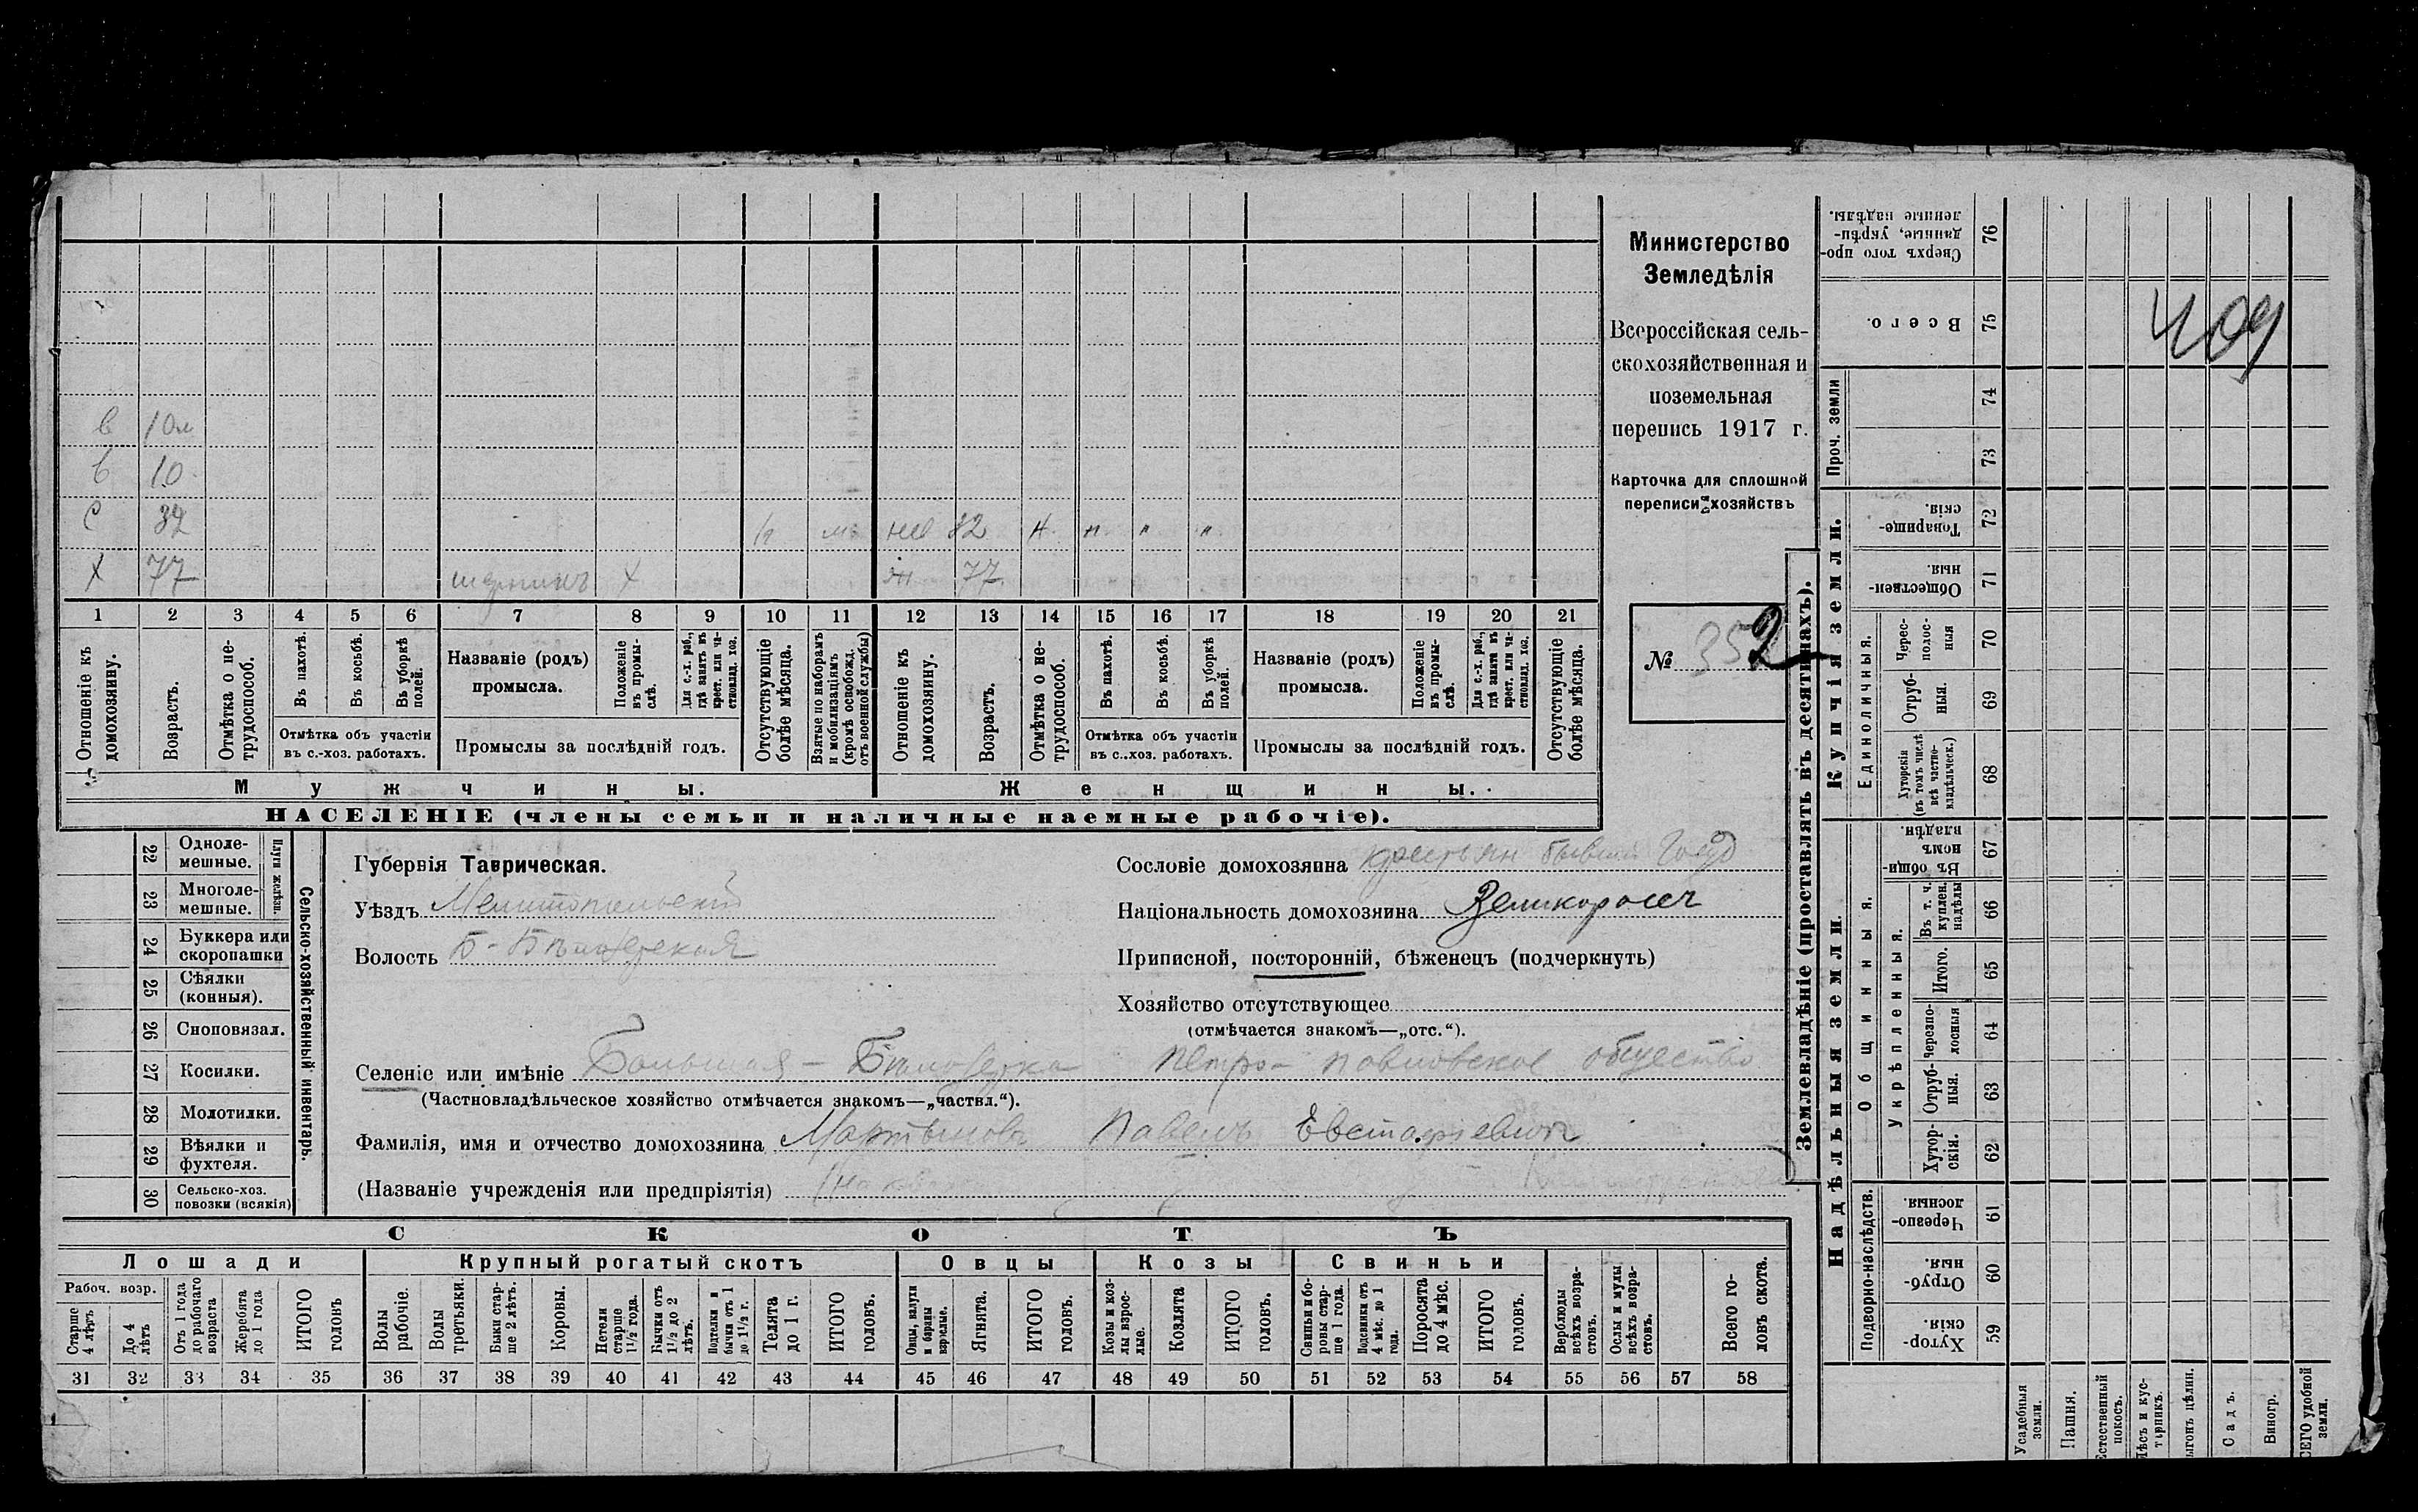 в 10м
в 10
с 32 нев 32 н. п. " "
х 77 х ж 77
1 2 3 4 5 6 7 8 9 10 11 12 13 14 15 16 17 18 19 20 21
Отношеніе къ домохозяину.
Возрастъ.
Отмѣтка о не-трудоспособ.
Въ пахотѣ.
Въ косьбѣ.
Въ уборкѣ полей.
Отмѣтка объ участіи
въ с.-хоз. работахъ.
Названіе (родъ)
промысла.
Положеніе въ промы-слѣ.
Для с.-х. раб., гдѣ занятъ въ крест. или ча-стновлад. хоз.
Промыслы за послѣдній годъ.
Отсутствующіе болѣе мѣсяца.
Взятые по наборамъ и мобилизаціямъ (кромѣ освобожд. отъ военной службы)
Отношеніе къ домохозяину.
Возрастъ.
Отмѣтка о не-трудоспособ.
Въ пахотѣ.
Въ косьбѣ.
Въ уборкѣ полей.
Отмѣтка объ участіи
въ с.-хоз. работахъ.
Названіе (родъ)
промысла.
Положеніе въ промы-слѣ.
Для с.-х. раб., гдѣ занята въ крест. или ча-стновлад. хоз.
Промыслы за послѣдній годъ.
Отсутствующіе болѣе мѣсяца.
Мужчины.
Женщины.
НАСЕЛЕНІЕ (члены семьи и наличные наемные рабочіе).
Министерство
Земледѣлія
Всероссійская сель-
скохозяйственная и
поземельная
перепись 1917 г.
Карточка для сплошной
переписи хозяйствъ
№ 352
22 Одноле-мешные.
23 Многоле-мешные.
Плуги желѣзн.
24 Буккера или скоропашки
25 Сѣялки (конныя).
26 Сноповязал.
27 Косилки.
28 Молотилки.
29 Вѣялки и фухтеля.
30 Сельско-хоз. повозки (всякія)
Сельско-хозяйственный инвентарь.
Губернія Таврическая.
Уѣздъ Мелитопольскій
Волость Б-Бѣлозерская
Сословіе домохозяина крестьян бывш
Національность домохозяина Великороссъ
Приписной, посторонній, бѣженецъ (подчеркнуть)
Хозяйство отсутствующее
(отмѣчается знакомъ—„отс.“).
Селеніе или имѣніе Большая - Бѣлозерка Петро-Павловское общество
(Частновладѣльческое хозяйство отмѣчается знакомъ—„частвл.“).
Фамилія, имя и отчество домохозяина Мартыновъ Павелъ Евстафіевичъ
(Названіе учрежденія или предпріятія)
СКОТЪ
Лошади
Крупный рогатый скотъ
Овцы
Козы
Свиньи
Рабоч. возр.
Старше 4 лѣтъ
До 4 лѣтъ
Отъ 1 года до рабочаго возраста
Жеребята до 1 года
ИТОГО головъ
Волы рабочіе.
Волы третьяки.
Быки стар-ше 2 лѣтъ.
Коровы.
Нетели старше 1½ года.
Бычки отъ 1½ до 2 лѣтъ.
Подтелки и бычки отъ 1 до 1½ г.
Телята до 1 г.
ИТОГО головъ.
Овцы, валухи и бараны взрослые.
Ягнята.
ИТОГО головъ.
Козы и коз-лы взрос-лые.
Козлята
ИТОГО головъ.
Свиньи и бо-ровы стар-ше 1 года.
Подсвинки отъ 4 мѣс. до 1 года.
Поросята до 4 мѣс.
ИТОГО головъ.
Верблюды всѣхъ возра-стовъ.
Ослы и мулы всѣхъ возра-стовъ.
Всего го-ловъ скота.
31 32 33 34 35 36 37 38 39 40 41 42 43 44 45 46 47 48 49 50 51 52 53 54 55 56 57 58
Землевладѣніе (проставлять въ десятинахъ).
Надѣльныя земли.
Купчія земли.
Проч. земли
Подворно-наслѣдств.
Общинныя.
Укрѣпленныя.
Единоличныя.
Сверхъ того про-данные, укрѣп-ленные надѣлы. 76
Всего. 75
74
73
Товарище-скія. 72
Обществен-ныя. 71
Черес-полос-ныя 70
Отруб-ныя. 69
Хуторскія (въ томъ числѣ всѣ частно-владѣльческ.) 68
Въ общин-номъ владѣн. 67
Въ т. ч. куплен. надѣлы 66
Итого. 65
Черезпо-лосныя 64
Отруб-ныя. 63
Хутор-скія. 62
Черезпо-лосныя 61
Отруб-ныя. 60
Хутор-скія. 59
Усадебныя земли.
Пашня.
Естественный покосъ.
Лѣсъ и кус-тарникъ.
ыгонъ цѣлин.
Садъ.
Виногр.
СЕГО удобной земли.
409